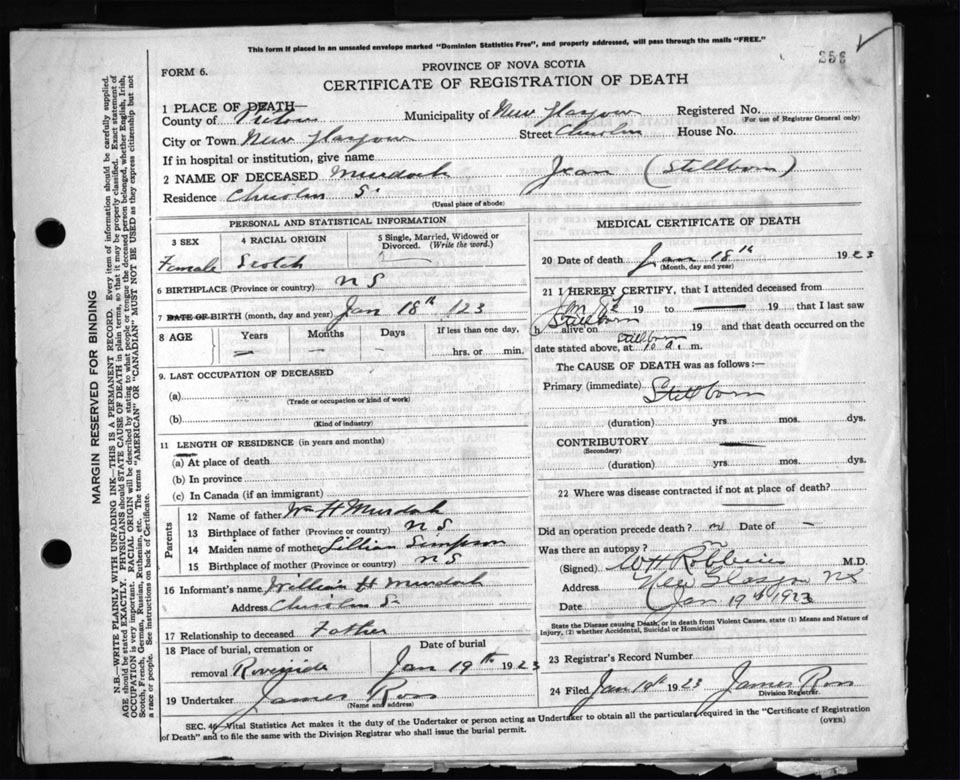 This form if placed in an unsealed envelope marked "Dominion Statistics Free", and properly addressed, will pass through the mails "FREE."
FORM 6.
PROVINCE OF NOVA SCOTIA
CERTIFICATE OF REGISTRATION OF DEATH
1 PLACE OF DEATH—
County of Pictou Municipality of New Glasgow Registered No.
(For use of Registrar General only)
City or Town New Glasgow Street Chisolm House No.
If in hospital or institution, give name
2 NAME OF DECEASED Murdock Jean (Stillborn)
Residence Chisolm S.
(Usual place of abode)
PERSONAL AND STATISTICAL INFORMATION
3 SEX 4 RACIAL ORIGIN 5 Single, Married, Widowed or Divorced. (Write the word.)
Female Scotch
6 BIRTHPLACE (Province or country) N S
7 DATE OF BIRTH (month, day and year) Jan 18th /23
8 AGE Years Months Days If less than one day,
— — — hrs. or min.
9. LAST OCCUPATION OF DECEASED
(a)
(Trade or occupation or kind of work)
(b)
(Kind of industry)
11 LENGTH OF RESIDENCE (in years and months)
(a) At place of death
(b) In province
(c) In Canada (if an immigrant)
Parents
12 Name of father Wm H Murdock
13 Birthplace of father (Province or country) N S
14 Maiden name of mother Lillian Simpson
15 Birthplace of mother (Province or country) N S
16 Informant's name William H Murdock
Address Chisolm S
17 Relationship to deceased Father
18 Place of burial, cremation or removal Riverside
Date of burial Jan 19th 1923
19 Undertaker James Ross
(Name and address)
MEDICAL CERTIFICATE OF DEATH
20 Date of death Jan 18th 1923
(Month, day and year)
21 I HEREBY CERTIFY, that I attended deceased from
19 to — 19 that I last saw
h alive on Stillborn 19 and that death occurred on the
date stated above, at Stillborn 10 a. m.
The CAUSE OF DEATH was as follows:—
Primary (immediate) Stillborn
(duration) yrs. mos. dys.
CONTRIBUTORY —
(Secondary)
(duration) yrs. mos. dys.
22 Where was disease contracted if not at place of death?
Did an operation precede death? no Date of —
Was there an autopsy? no
(Signed) M.D.
Address New Glasgow NS
Date Jan 19th 1923
State the Disease causing Death, or in death from Violent Causes, state (1) Means and Nature of Injury, (2) whether Accidental, Suicidal or Homicidal
23 Registrar's Record Number
24 Filed Jan 1923 James Ross
Division Registrar.
SEC. 46—Vital Statistics Act makes it the duty of the Undertaker or person acting as Undertaker to obtain all the particulars required in the "Certificate of Registration
of Death" and to file the same with the Division Registrar who shall issue the burial permit.
(OVER)
MARGIN RESERVED FOR BINDING
N.B.—WRITE PLAINLY WITH UNFADING INK—THIS IS A PERMANENT RECORD. Every item of information should be carefully supplied.
AGE should be stated EXACTLY. PHYSICIANS should STATE CAUSE OF DEATH in plain terms, so that it may be properly classified. Exact statement of
OCCUPATION is very important. RACIAL ORIGIN will be described by stating to what people or tongue the deceased person belonged, whether English, Irish,
Scotch, French, German, Russian, Ruthenian, etc. The terms "AMERICAN" or "CANADIAN" MUST NOT BE USED as they express citizenship but not
a race or people. See instructions on back of Certificate.